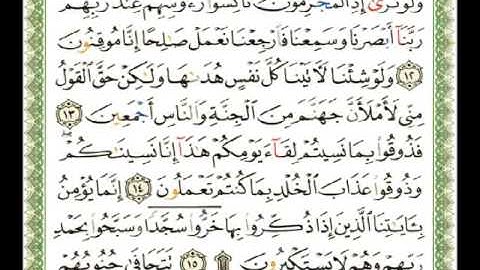 وَلَوْ تَرَىٰٓ إِذِ ٱلْمُجْرِمُونَ نَاكِسُوا۟ رُءُوسِهِمْ عِندَ رَبِّهِمْ
رَبَّنَآ أَبْصَرْنَا وَسَمِعْنَا فَٱرْجِعْنَا نَعْمَلْ صَـٰلِحًا إِنَّا مُوقِنُونَ
١٢ وَلَوْ شِئْنَا لَـَٔاتَيْنَا كُلَّ نَفْسٍ هُدَىٰهَا وَلَـٰكِنْ حَقَّ ٱلْقَوْلُ
مِنِّى لَأَمْلَأَنَّ جَهَنَّمَ مِنَ ٱلْجِنَّةِ وَٱلنَّاسِ أَجْمَعِينَ ١٣
فَذُوقُوا۟ بِمَا نَسِيتُمْ لِقَآءَ يَوْمِكُمْ هَـٰذَآ إِنَّا نَسِينَـٰكُمْ
وَذُوقُوا۟ عَذَابَ ٱلْخُلْدِ بِمَا كُنتُمْ تَعْمَلُونَ ١٤ إِنَّمَا يُؤْمِنُ
بِـَٔايَـٰتِنَا ٱلَّذِينَ إِذَا ذُكِّرُوا۟ بِهَا خَرُّوا۟ سُجَّدًا وَسَبَّحُوا۟ بِحَمْدِ
رَبِّهِمْ وَهُمْ لَا يَسْتَكْبِرُونَ ۩ ١٥ تَتَجَافَىٰ جُنُوبُهُمْ